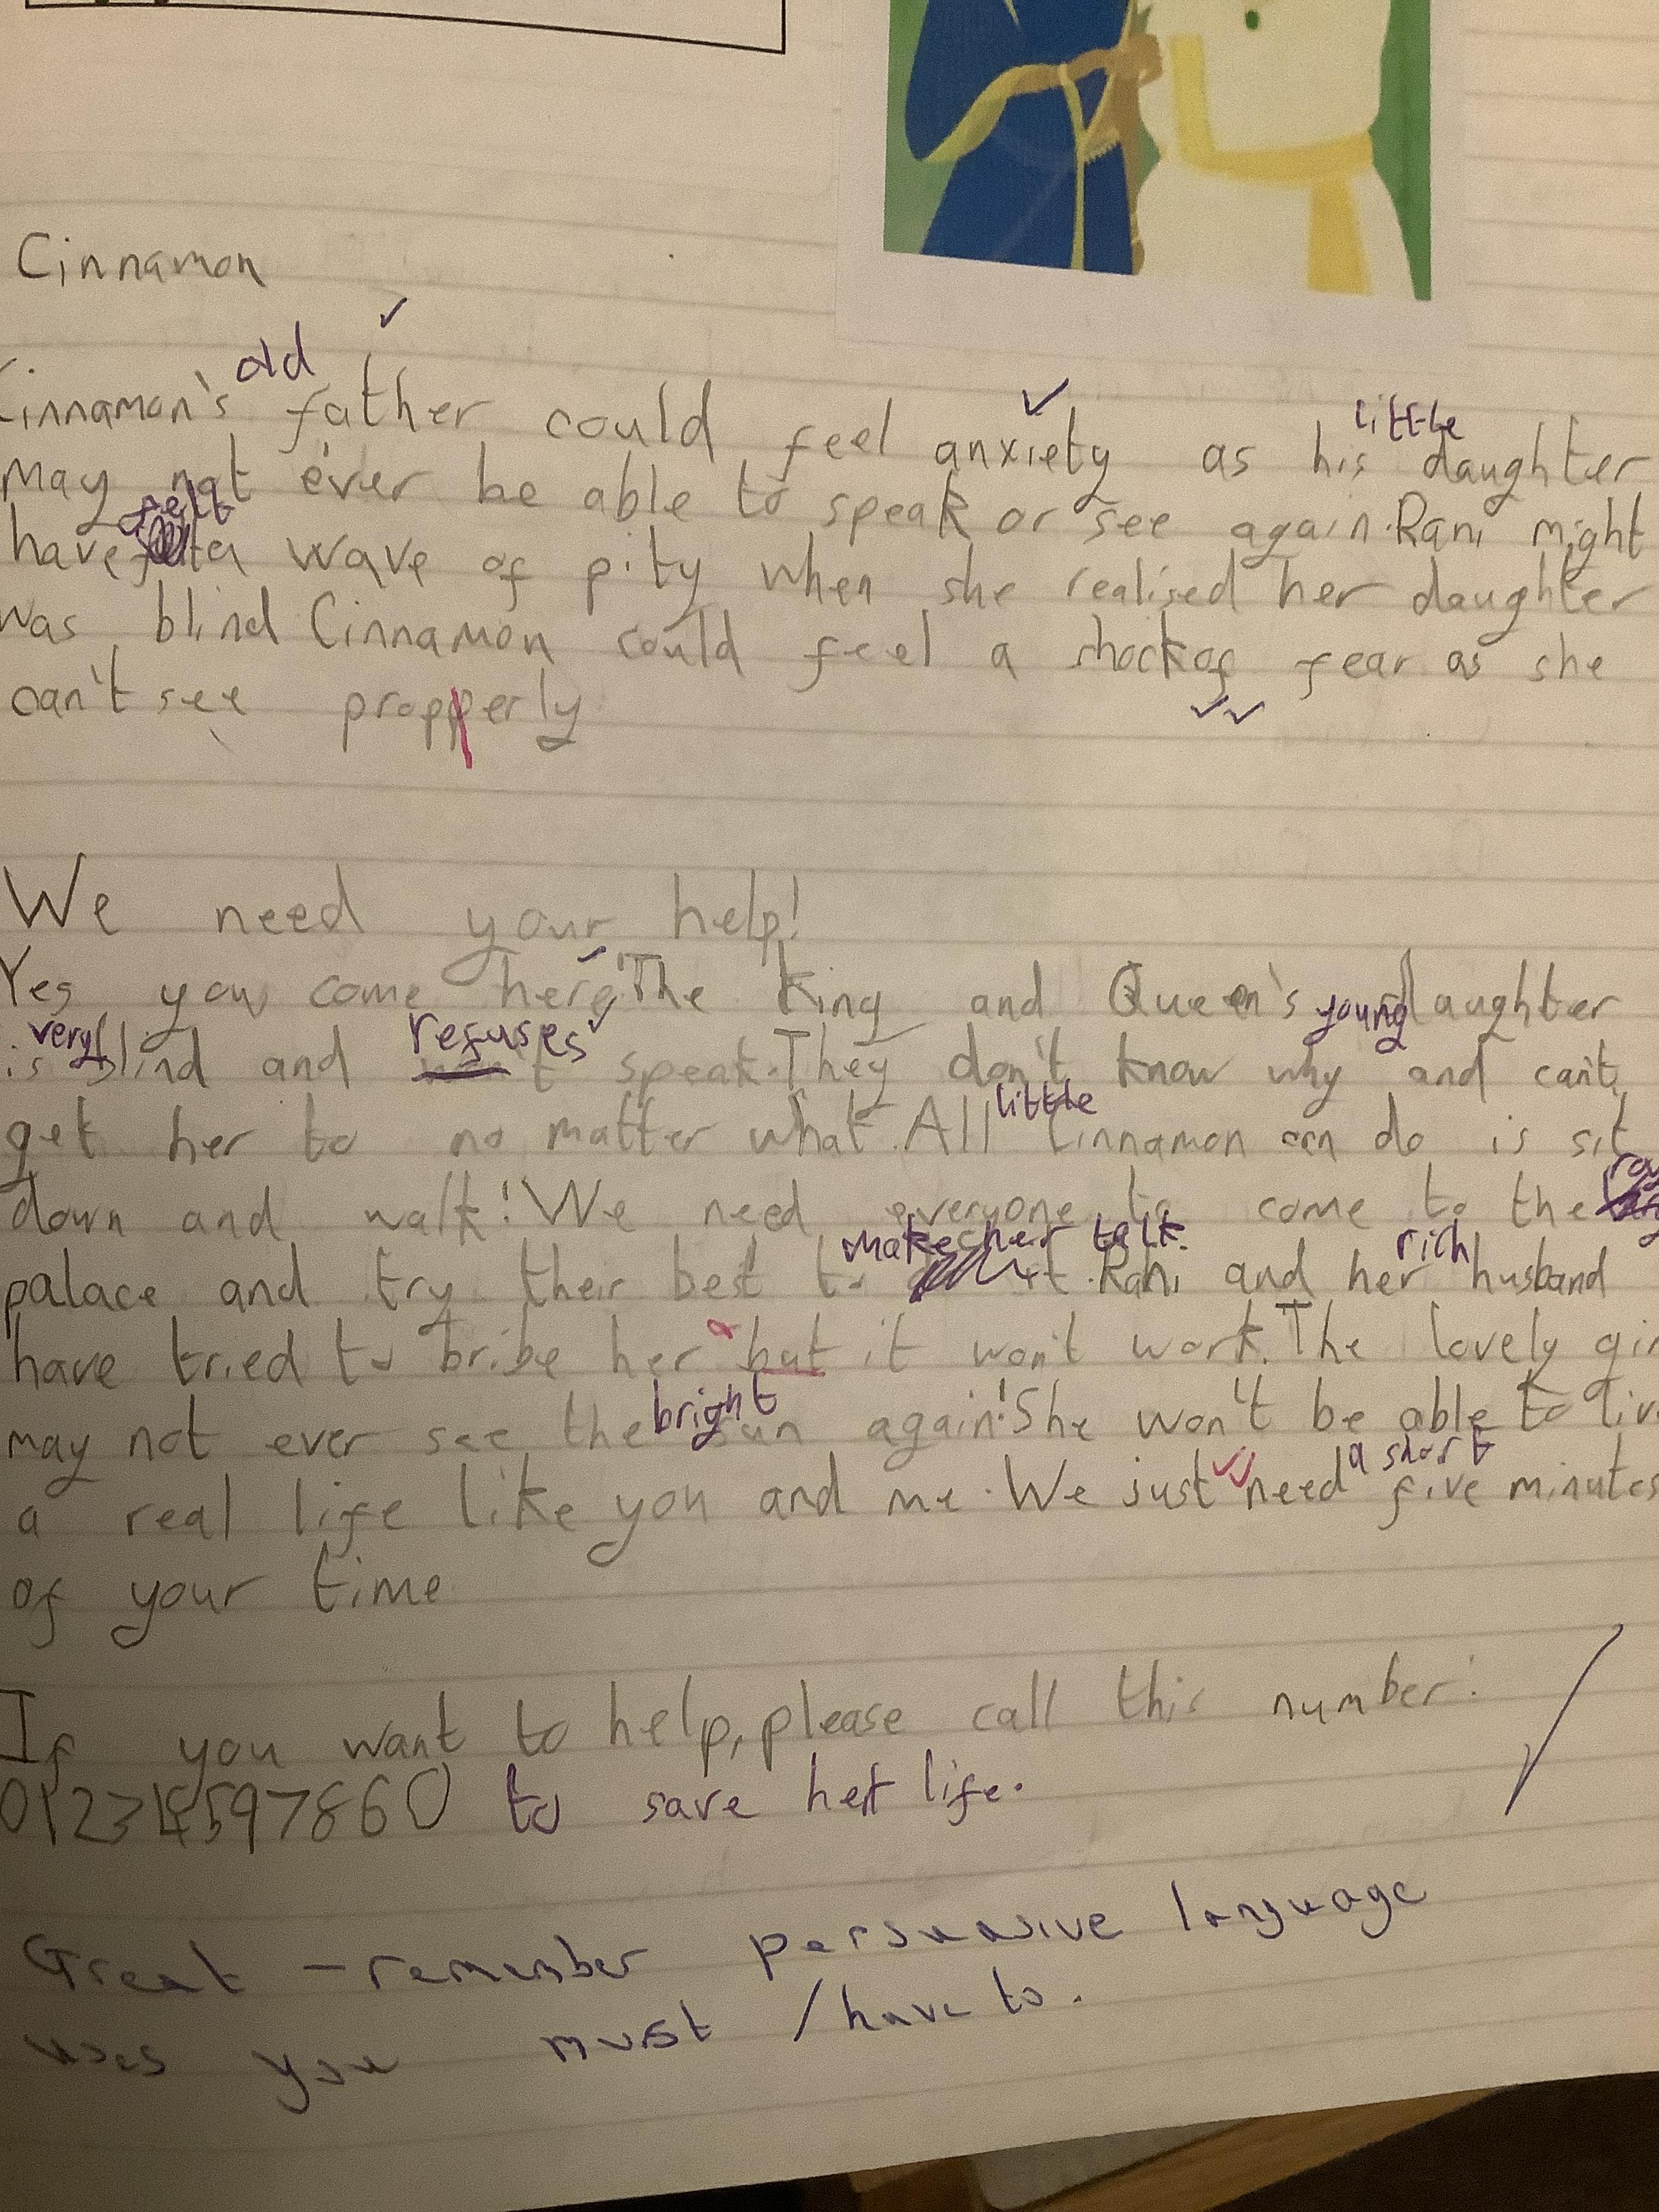 Cinnamon
Cinnamon's old father could feel anxiety as his little daughter
may not ever be able to speak or see again. Rani might
have felt a wave of pity when she realised her daughter
was blind Cinnamon could feel a shock of fear as she
can't see propperly
We need your help!
Yes you come here! The King and Queen's young daughter
is very blind and refuses t speak. They don't know why and can't
get her to no matter what. All little Cinnamon can do is sit
down and walk! We need everyone to come to the
palace and try their best to make her talk. Rani and her rich husband
have tried to bribe her but it won't work. The lovely gir
may not ever see the bright sun again! She won't be able to liv
a real life like you and me. We just need a short five minutes
of your time
If you want to help, please call this number:
01234597860 to save her life.
Great - remember persuasive language
uses you must / have to.